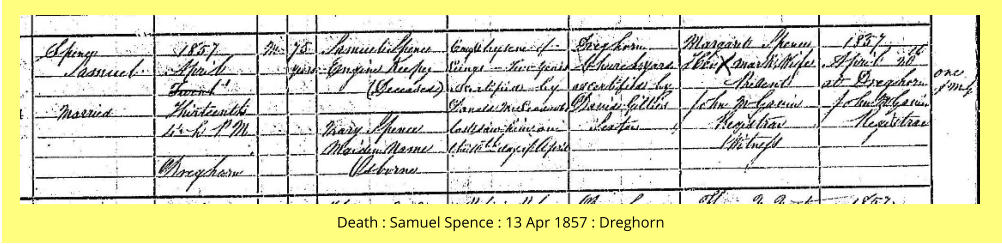 Spence
Samuel
Married
1857
April
Thirteenth
P.M.
Dreghorn
M
75
years
Samuel Spence
Engine Keeper
(Deceased)
Mary Spence
Maiden Name
Osborne
Emphysema of
Lungs Two years
certified by
last saw him on
day of April
Dreghorn
Churchyard
as certified by
David Gillies
Sexton
Margaret Spence
Her X mark Wife
Resident
John McGavin
Registrar
Witness
1857
April 20th
at Dreghorn
John McGavin
Registrar
one
1857
Death : Samuel Spence : 13 Apr 1857 : Dreghorn